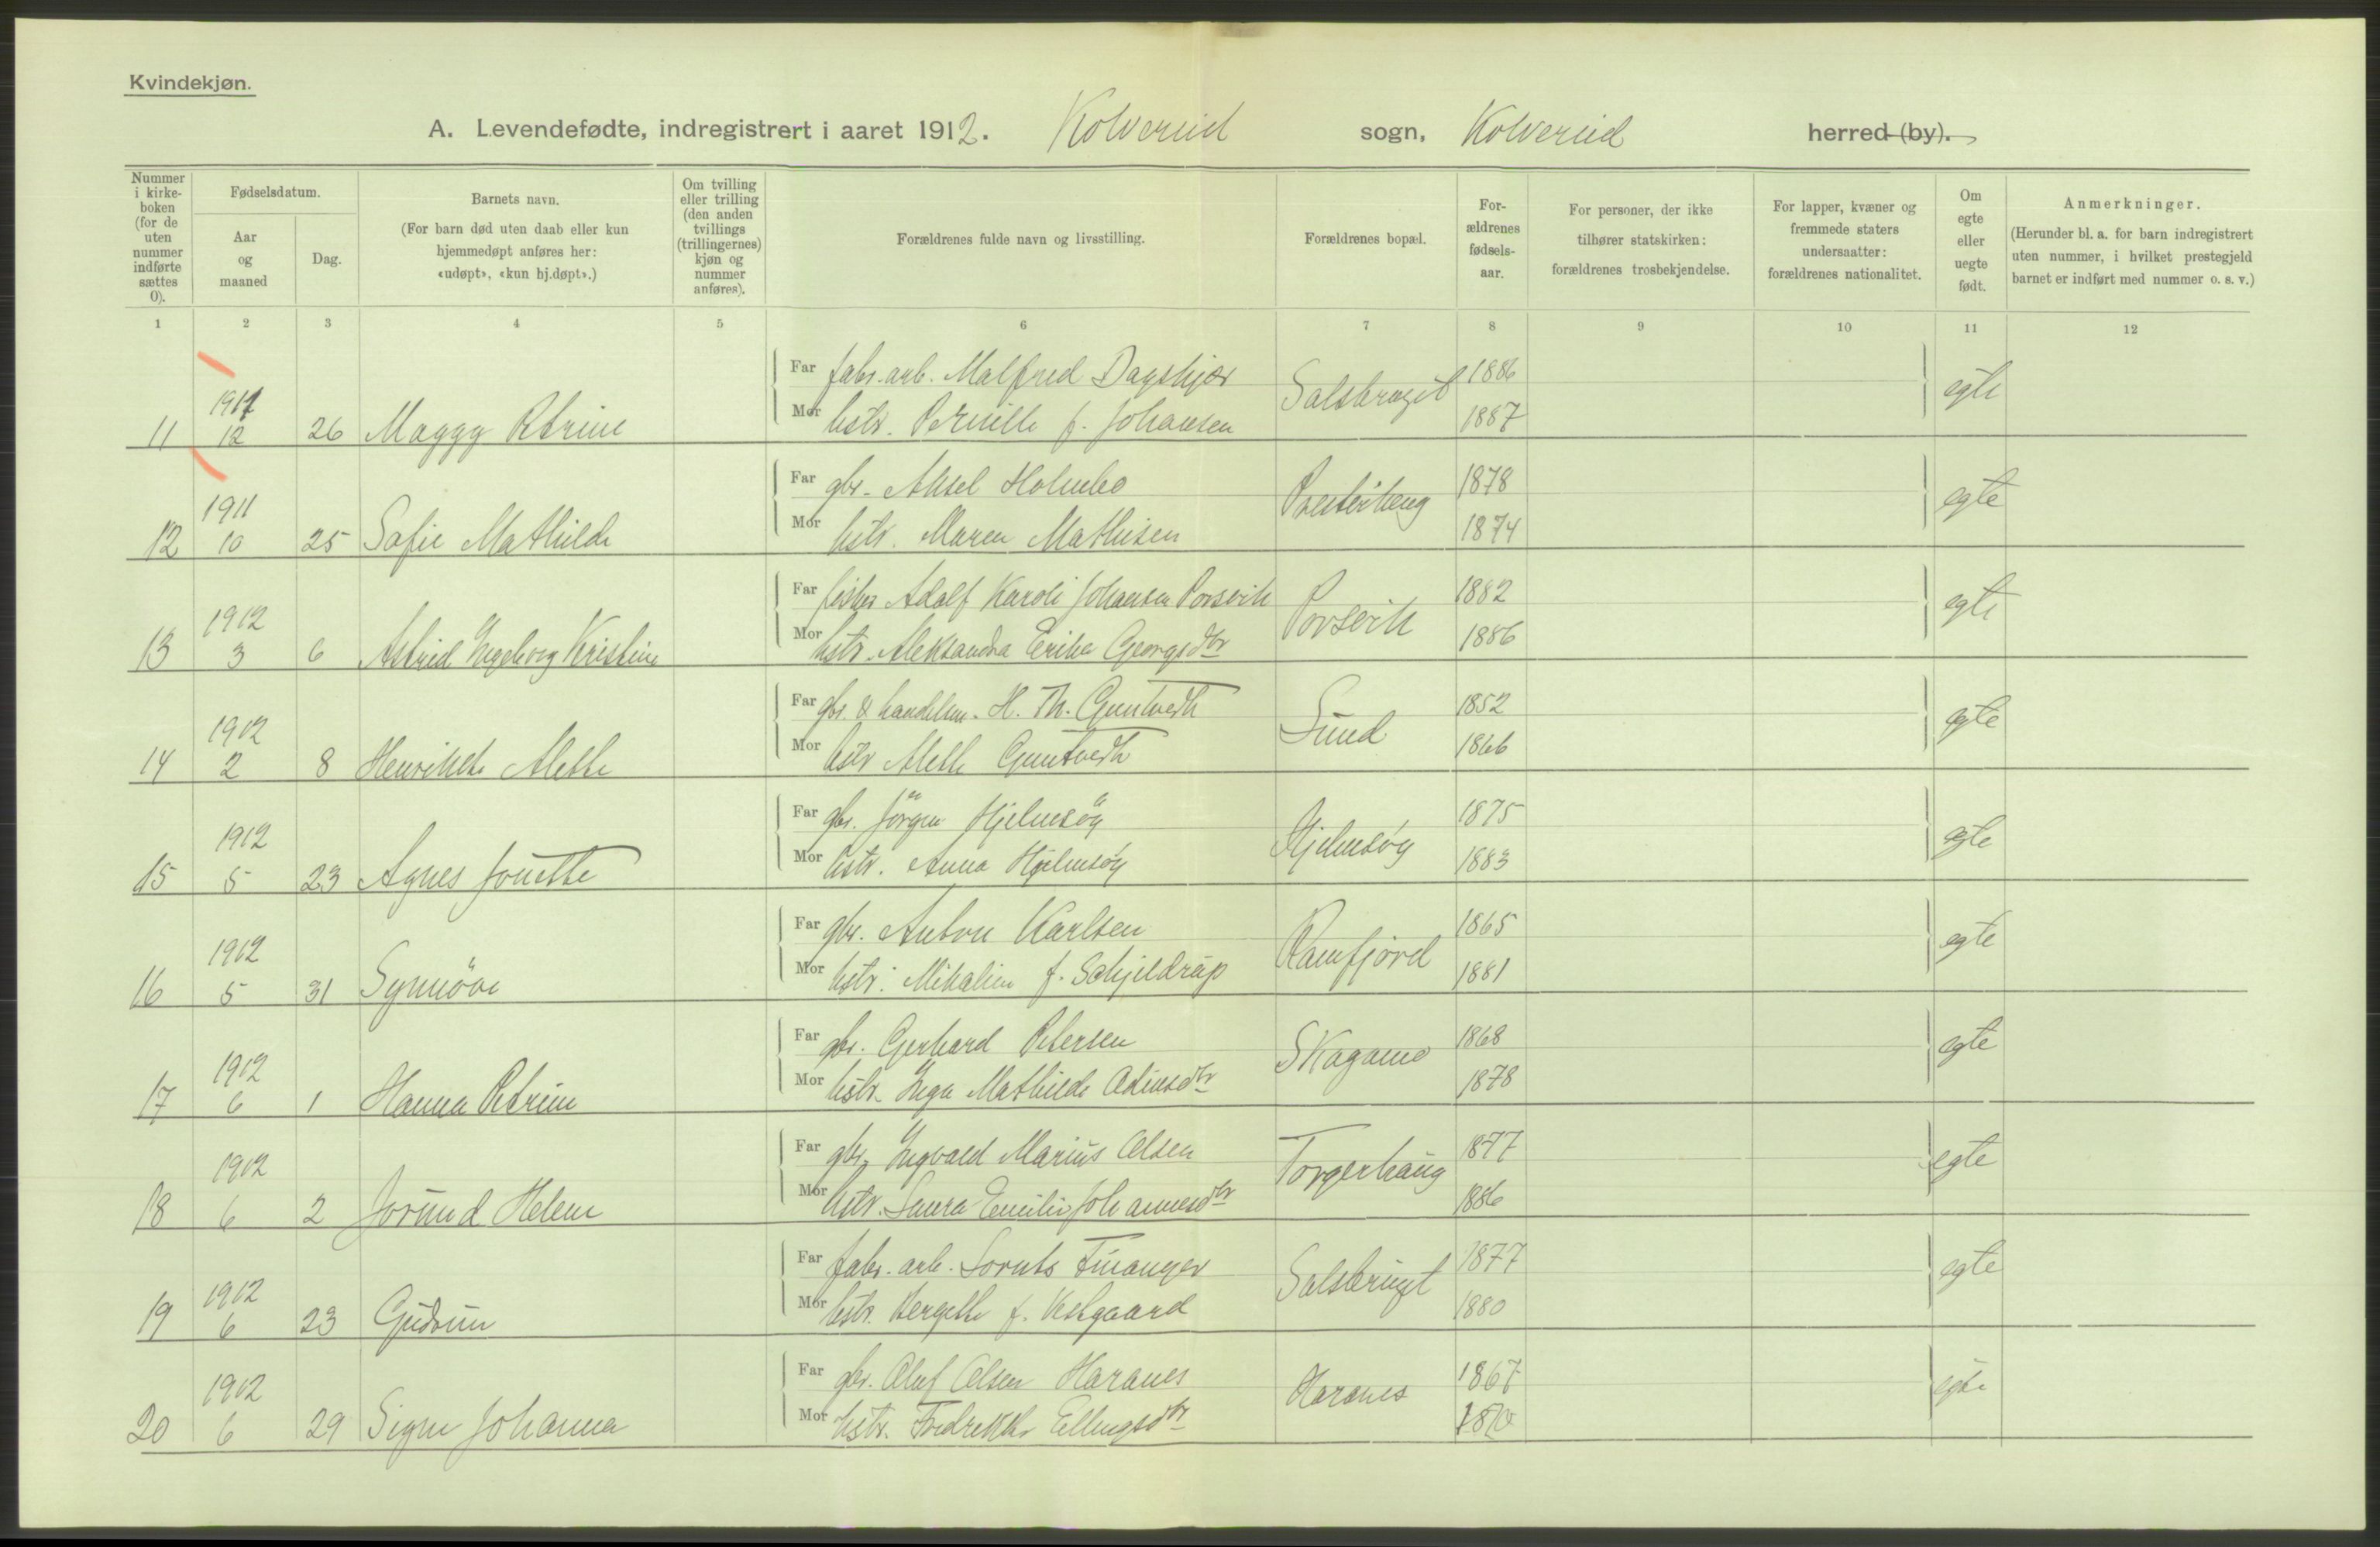 Kvindekjøn.
A. Levendefødte, indregistrert i aaret 1912. Kolvereid sogn, Kolvereid herred (by).
Nummer i kirke-boken (for de uten nummer indførte sættes 0).
Fødselsdatum.
Aar og maaned
Dag.
Barnets navn.
(For barn død uten daab eller kun hjemmedøpt anføres her: «udøpt», «kun hj.døpt».)
Om tvilling eller trilling (den anden tvillings (trillingernes) kjøn og nummer anføres).
Forældrenes fulde navn og livsstilling.
Forældrenes bopæl.
For-ældrenes fødsels-aar.
For personer, der ikke tilhører statskirken: forældrenes trosbekjendelse.
For lapper, kvæner og fremmede staters undersaatter: forældrenes nationalitet.
Om egte eller uegte født.
Anmerkninger.
(Herunder bl. a. for barn indregistrert uten nummer, i hvilket prestegjeld barnet er indført med nummer o. s. v.)
1 2 3 4 5 6 7 8 9 10 11 12
Far fabr. arb. Malfred Dagshjær Salsbruget 1886 egte
Mor hstr. Pernille f. Johansen 1887
11 1911 12 26 Maggy Petrine
Far gbr. Aksel Holmbo 1878 egte
Mor hstr. Maren Mathisen 1874
12 1911 10 25 Sofie Mathilde
Far fisker Adolf Karoli Johansen Povsvik Povsvik 1882 egte
Mor hstr. Aleksandra Erika Georgsdtr 1886
13 1912 3 6 Astrid Ingeborg Kristine
Far gbr. & handelsm. H. Th. Guntvedt Sund 1852 egte
Mor hstr Alette Guntvedt 1866
14 1912 2 8 Henrikke Alette
Far gbr. Jörgen Hjelmsöy Hjelmsöy 1875 egte
Mor hstr. Anna Hjelmsöy 1883
15 1912 5 23 Agnes Jonette
Far gbr. Anton Karlsen Ramfjord 1865 egte
Mor hstr. Mikaline f. Schjeldrup 1881
16 1912 5 31 Synnöve
Far gbr. Gerhard Petersen Skagamo 1868 egte
Mor hstr. Inga Mathilde Odinsdtr 1878
17 1912 6 1 Hanna Petrine
Far gbr. Ingvald Marius Olsen Torgerhaug 1877 egte
Mor hstr. Laura Emilie Johannesdtr 1886
18 1912 6 2 Jorund Helene
Far fabr. arb. Lornts Finanger Salsbruget 1877 egte
Mor hstr. Bergitte f. Vestgaard 1880
19 1912 6 23 Gudrun
Far gbr. Oluf Olsen Haranes Haranes 1867 egte
Mor hstr. Fredrikke Ellingsdtr
20 1912 6 29 Signe Johanna